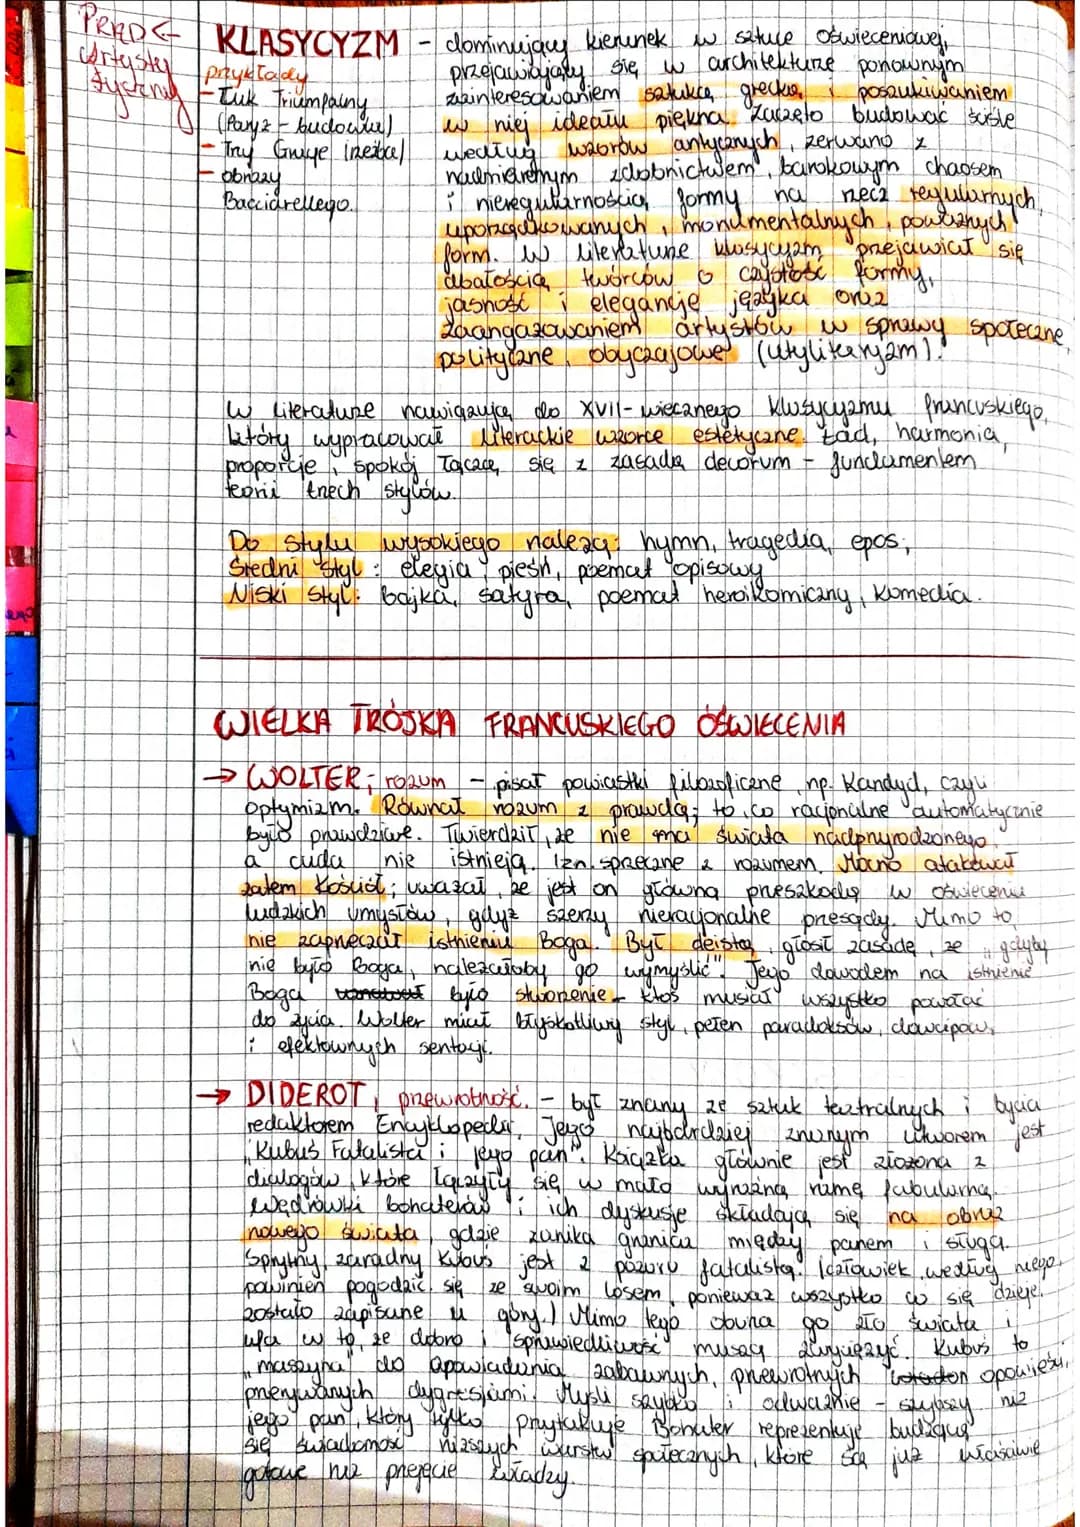 PRĄD ←
Artysty
tyczny
KLASYCYZM - dominujący kierunek w sztuce oświeceniowej,
przykłady
- Łuk Triumfalny
(Paryż - budowle)
- Trzy Gracje (rzeźba)
- obrazy
Bacciarellego.
przejawiający się w architekturze ponownym
zainteresowaniem sztuką grecką i poszukiwaniem
w niej ideału piękna. Zaczęto budować ściśle
według wzorów antycznych, zerwano z
nadmiernym zdobnictwem, barokowym chaosem
i nieregularnością formy na rzecz regularnych,
uporządkowanych, monumentalnych, poważnych
form. W literaturze klasycyzm przejawiał się
dbałością twórców o czystość formy,
jasność i elegancję języka oraz
zaangażowaniem artystów w sprawy społeczne,
polityczne, obyczajowe (utylitaryzm).
W literaturze nawiązują do XVII-wiecznego klasycyzmu francuskiego,
który wypracował literackie wzorce estetyczne. Ład, harmonia,
proporcje, spokój łączą się z zasadą decorum - fundamentem
teorii trzech stylów.
Do stylu wysokiego należą: hymn, tragedia, epos;
Średni styl: elegia, pieśń, poemat opisowy
Niski styl: bajka, satyra, poemat heroikomiczny, komedia.
WIELKA TRÓJKA FRANCUSKIEGO OŚWIECENIA
→ WOLTER; rozum - pisał powiastki filozoficzne, np. Kandyd, czyli
optymizm. Równał rozum z prawdą; to, co racjonalne automatycznie
było prawdziwe. Twierdził, że nie ma świata nadprzyrodzonego,
a cuda nie istnieją, tzn. sprzeczne z rozumem. Mocno atakował
zatem Kościół; uważał, że jest on główną przeszkodą w oświeceniu
ludzkich umysłów, gdyż szerzy nieracjonalne przesądy. Mimo to,
nie zaprzeczał istnieniu Boga. Był deistą, głosił zasadę, że „gdyby
nie było Boga, należałoby go wymyślić". Jego dowodem na istnienie
Boga było stworzenie - ktoś musiał wszystko powołać
do życia. Wolter miał błyskotliwy styl, pełen paradoksów, dowcipów,
i efektownych sentencji.
→ DIDEROT, przewrotność. - był znany ze sztuk teatralnych i bycia
redaktorem Encyklopedii. Jego najbardziej znanym utworem jest
„Kubuś Fatalista i jego pan". Książka głównie jest złożona z
dialogów, które łączyły się w mało wyraźną ramę fabularną.
Wędrówki bohaterów i ich dyskusje składają się na obraz
nowego świata, gdzie zanika granica między panem i sługą.
Sprytny, zaradny Kubuś jest z pozoru fatalistą. (człowiek, według niego,
powinien pogodzić się ze swoim losem, ponieważ wszystko co się dzieje,
zostało zapisane u góry.) Mimo tego oburza go zło świata i
ufa w to, że dobro i sprawiedliwość muszą zwyciężyć. Kubuś to
„maszyna" do opowiadania zabawnych, przewrotnych opowieści,
przerywanych dygresjami. Myśli szybko i odważnie - szybszy niż
jego pan, który tylko przytakuje. Bohater reprezentuje budzącą
się świadomość niższych warstw społecznych, które są już właściwie
gotowe na przejęcie władzy.